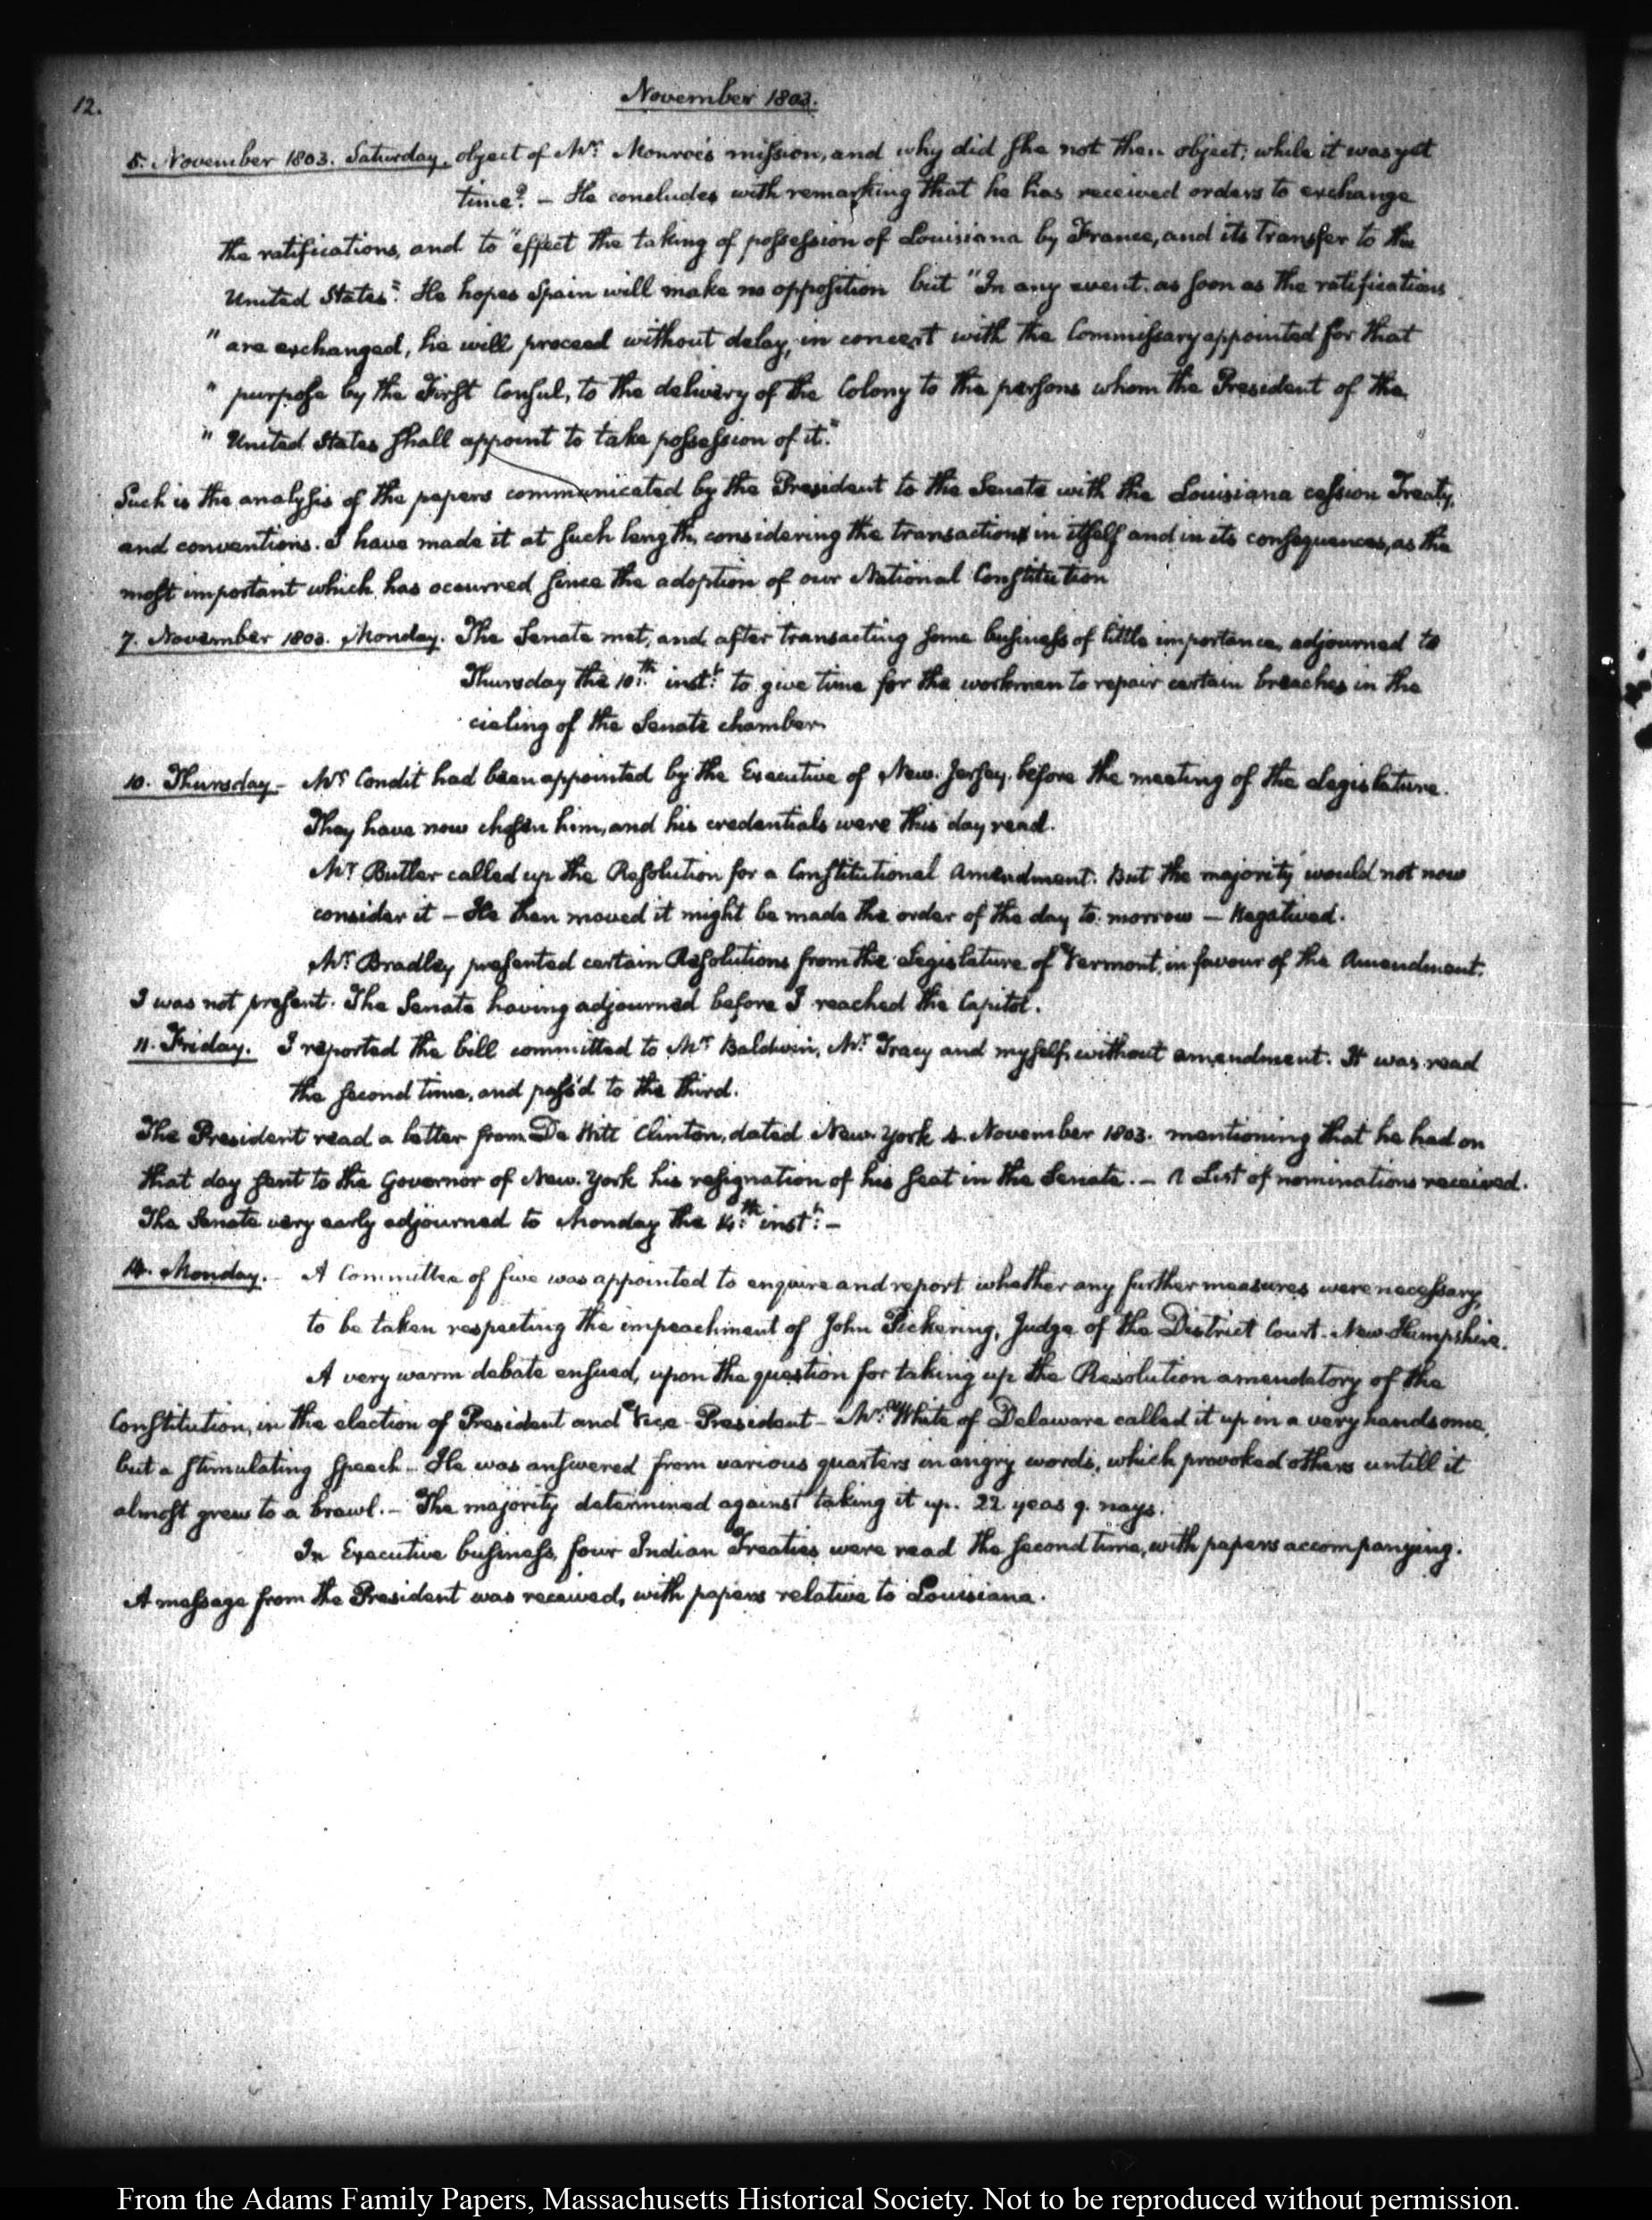 12.
November 1803.
5. November 1803. Saturday. object of Mr. Monroe's mission, and why did she not then object; while it was yet
time? — He concludes with remarking that he has received orders to exchange
the ratifications, and to "effect the taking of possession of Louisiana by France, and its transfer to the
United States". He hopes Spain will make no opposition but "In any event. as soon as the ratifications
" are exchanged, he will proceed without delay, in concert with the Commissary appointed for that
" purpose by the First Consul, to the delivery of the Colony to the persons whom the President of the
" United States shall appoint to take possession of it."
Such is the analysis of the papers communicated by the President to the Senate with the Louisiana cession Treaty,
and conventions. I have made it at such length, considering the transaction in itself and in its consequences, as the
most important which has occurred since the adoption of our National Constitution
7. November 1803. Monday. The Senate met, and after transacting some business of little importance, adjourned to
Thursday the 10th. inst: to give time for the workmen to repair certain breaches in the
cieling of the Senate chamber.
10. Thursday — Mr. Condit had been appointed by the Executive of New-Jersey, before the meeting of the Legislature.
They have now chosen him, and his credentials were this day read.
Mr. Butler called up the Resolution for a Constitutional Amendment. But the majority would not now
consider it — He then moved it might be made the order of the day to-morrow — Negatived.
Mr. Bradley presented certain Resolutions from the Legislature of Vermont, in favour of the Amendment.
I was not present. The Senate having adjourned before I reached the Capitol.
11. Friday. I reported the bill committed to Mr. Baldwin, Mr. Tracy and myself, without amendment. It was read
the second time, and pass'd to the third.
The President read a letter from De Witt Clinton, dated New-York 4. November 1803. mentioning that he had on
that day sent to the Governor of New-York his resignation of his seat in the Senate. — A List of nominations received.
The Senate very early adjourned to Monday the 14th. inst: —
14. Monday. A Committee of five was appointed to enquire and report whether any further measures were necessary,
to be taken respecting the impeachment of John Pickering, Judge of the District Court. New-Hampshire.
A very warm debate ensued, upon the question for taking up the Resolution amendatory of the
Constitution, in the election of President and Vice-President — Mr. White of Delaware called it up in a very handsome,
but a stimulating speech — He was answered from various quarters in angry words, which provoked others untill it
almost grew to a brawl. — The majority determined against taking it up. 22 yeas 9. nays.
In Executive business, four Indian Treaties were read the second time, with papers accompanying.
A message from the President was received, with papers relative to Louisiana.
From the Adams Family Papers, Massachusetts Historical Society. Not to be reproduced without permission.